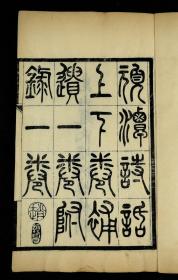 頑潭詩話
上下卷補
遺一卷附
錄一卷